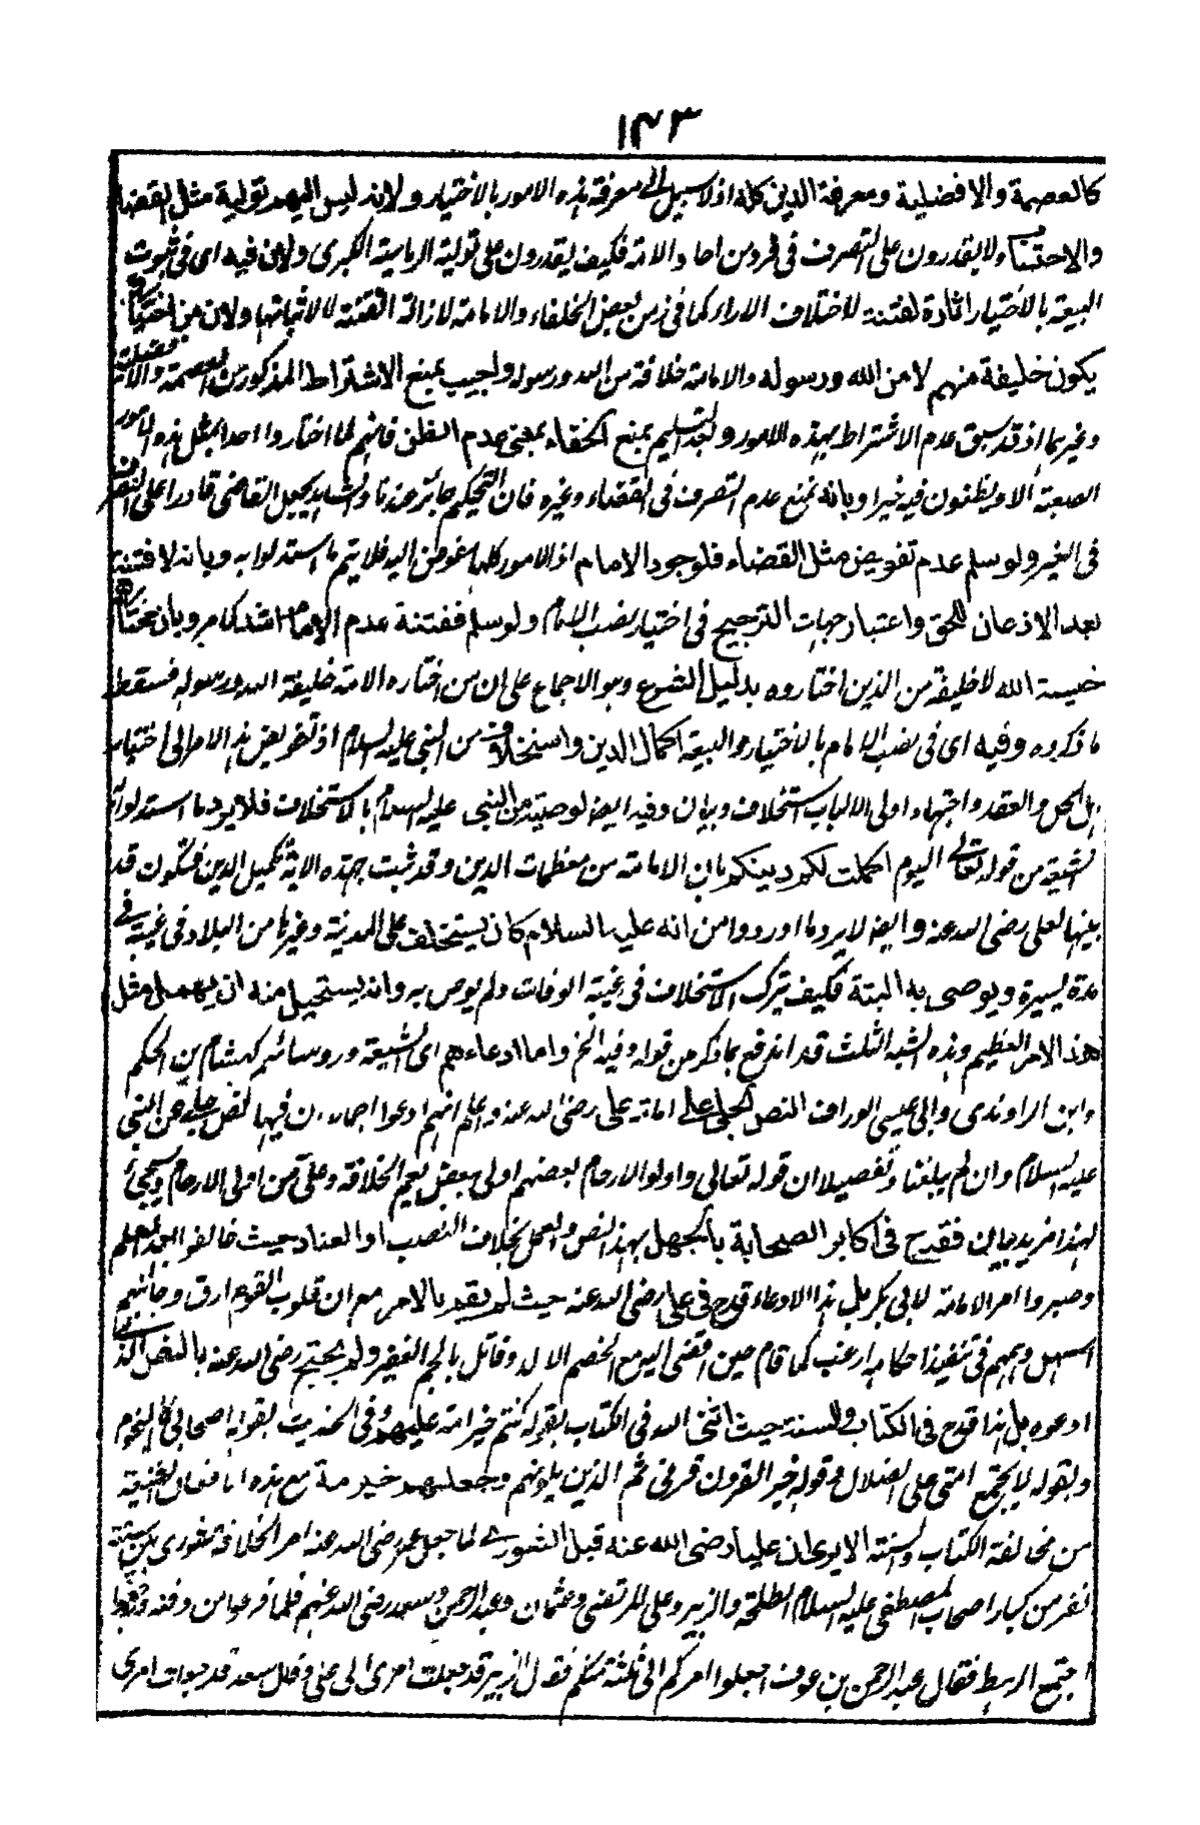 ١٤٣
كالعصمة والافضلية ومعرفة الدين كله اذ لا سبيل الى معرفة هذه الامور بالاختيار ولانه ليس اليهم تولية مثل القضاء
والاحتساب ولا يقدرون على التصرف فى فرد من احاد الامة فكيف يقدرون على تولية الرياسة الكبرى ولان فيه اى فى ثبوت
البيعة بالاختيار اثارة لفتنة لاختلاف الاراء كما فى زمن بعض الخلفاء والامامة لازالة الفتنة لا لاثباتها ولان من اختياره
يكون خليفة منهم لا من الله ورسوله والامامة خلافة من الله ورسوله واجيب بمنع الاشتراط المذكور من العصمة والافضلية
وغيرهما اذ قد سبق عدم الاشتراط بهذه الامور وبعد التسليم بمنع الخفاء بمعنى عدم الظن فانهم لما اختاروا احدا بمثل هذه الامور
الصعبة الا ويظنون فيه خيرا وبانه نمنع عدم التصرف فى القضاء وغيره فان التحكيم جائز عندنا والشاهد يجعل القاضى قادرا على التصرف
فى الغير ولو سلم عدم تفويض مثل القضاء فلوجود الامام اذ الامور كلها مفوض اليه فلا يتم ما استدلوا به وبانه لا فتنة
بعد الاذعان للحق واعتبار جهات الترجيح فى اختيار نصب الامام ولو سلم ففتنة عدم الامام اشد كما مر وبان مختاره
خليفة الله لا خليفة من الذين اختاروه بدليل الشرع وهو الاجماع على ان من اختاره الامة خليفة الله ورسوله فسقط
ما ذكروه وفيه اى فى نصب الامام بالاختيار والبيعة اكمال الدين واستخلاف من النبى عليه السلام اذ تفويض هذا الامر الى اختيار
اهل الحل والعقد واجتهاد اولى الالباب استخلاف وبيان وفيه ايضا لوصية من النبى عليه السلام بالاستخلاف فلا يرد ما استدلوا به
الشيعة من قوله تعالى اليوم اكملت لكم دينكم بان الامامة من معظمات الدين وقد ثبت بهذه الاية تكميل الدين فتكون قد
بينها لعلى رضى الله عنه وايضا لا يرد ما اوردوا من انه عليه السلام كان يستخلف على المدينة وغيرها من البلاد فى غيبته فى
مدة يسيرة ويوصى به البتة فكيف يترك الاستخلاف فى غيبة الوفات ولم يوص به وانه يستحيل منه ان يهمل مثل
هذا الامر العظيم وهذه الشبه الثلث قد اندفع بما ذكر من قوله وفيه الخ واما ادعاءهم اى الشيعة وروسائهم كهشام بن الحكم
وابن الراوندى وابى عيسى الوراق النص الجلى على امامة على رضى الله عنه واعلم انهم ادعوا اجمالا ان فيها لنص جلى عن النبى
عليه السلام وان لم يبلغنا وتفصيلا ان قوله تعالى واولو الارحام بعضهم اولى ببعض يعم الخلافة وعلى من اولى الارحام ويجئ
لهذا مزيد بيان فقدح فى اكابر الصحابة بالجهل بهذا النص والعمل بخلاف النصب او العناد حيث خالفوا بعد العلم
وصيروا امر الامامة لابى بكر بل هذا الادعاء قدح فى على رضى الله عنه حيث لم يقم بالامر مع ان قلوب القوم ارق وجانبهم
اسهل وهمهم فى تنفيذ احكامه ارغب كما قام حين افضى اليه مع الخصم الالد وقاتل بالجم الغفير ولم يحتج رضى الله عنه بالنص الذى
ادعوه بل هذا قدح فى الكتاب والسنة حيث اثنى الله فى الكتاب بقوله كنتم خير امة عليهم وفى الحديث بقوله اصحابى كالنجوم
وبقوله لا يجتمع امتى على الضلال وقوله خير القرون قرنى ثم الذين يلونهم وجعلهم خير امة مع هذه الافعال الشنيعة
من مخالفة الكتاب والسنة الا يرى ان عليا رضى الله عنه قبل الشورى لما جعل عمر رضى الله عنه امر الخلافة شورى بين ستة
نفر من كبار اصحاب المصطفى عليه السلام لطلحة والزبير وعلى المرتضى وعثمان وعبد الرحمن وسعد رضى الله عنهم فلما فرغوا من دفنه
اجتمع الرهط فقال عبد الرحمن بن عوف اجعلوا امركم الى ثلثة منكم فقال الزبير قد جعلت امرى الى على وقال سعد قد جعلت امرى